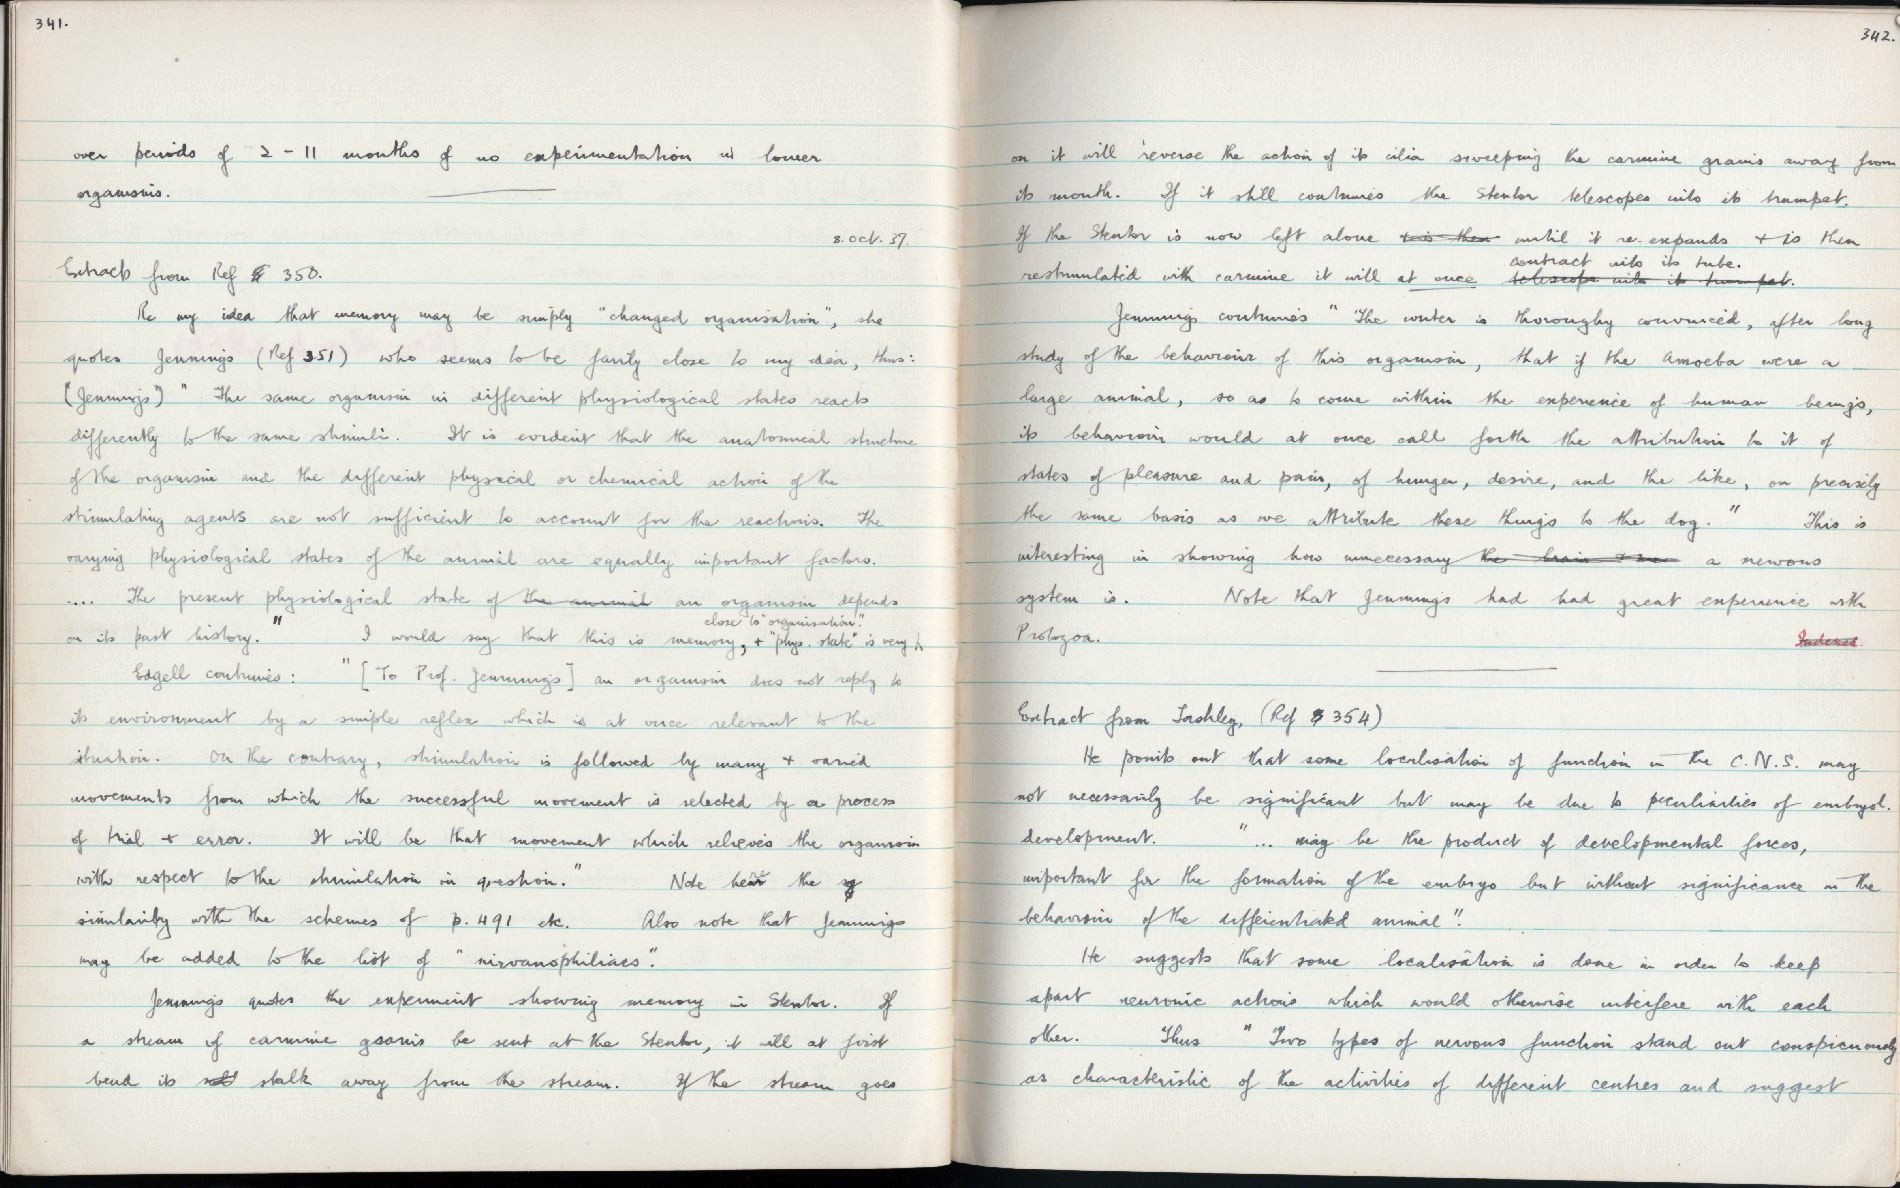 341.
over periods of 2 - 11 months of no experimentation in lower
organisms.
8. Oct. 37.
Extracts from Ref 350.
Re my idea that memory may be simply "changed organisation", she
quotes Jennings (Ref 351) who seems to be fairly close to my idea, thus:
(Jennings") " The same organism in different physiological states reacts
differently to the same stimuli. It is evident that the anatomical structure
of the organism and the different physical or chemical action of the
stimulating agents are not sufficient to account for the reactions. The
varying physiological states of the animal are equally important factors.
.... The present physiological state of the animal an organism depends
close to "organisation".
on its past history." I would say that this is memory, + "phys. state" is very
Edgell continues: "[To Prof. Jennings] an organism does not reply to
its environment by a simple reflex which is at once relevant to the
situation. On the contrary, stimulation is followed by many + varied
movements from which the successful movement is selected by a process
of trial + error. It will be that movement which relieves the organism
with respect to the stimulation in question." Note here the
similarity with the schemes of p. 491 etc. Also note that Jennings
may be added to the list of "nirvanophiliacs".
Jennings quotes the experiment showing memory in Stentor. If
a stream of carmine grains be sent at the Stentor, it will at first
bend its stalk away from the stream. If the stream goes
342.
on it will reverse the action of its cilia sweeping the carmine grains away from
its mouth. If it still continues the Stentor telescopes into its trumpet.
If the Stentor is now left alone + is then until it re-expands + is then
contract into its tube.
restimulated with carmine it will at once telescope into its trumpet.
Jennings continues "The writer is thoroughy convinced, after long
study of the behaviour of this organism, that if the Amoeba were a
large animal, so as to come within the experience of human beings,
its behaviour would at once call forth the attribution to it of
states of pleasure and pain, of hunger, desire, and the like, on precisely
the same basis as we attribute these things to the dog." This is
interesting in showing how unnecessary the brain + ne a nervous
system is. Note that Jennings had had great experience with
Protozoa.
Indexed.
Extract from Lashley, (Ref 354)
He points out that some localisation of function in the C.N.S. may
not necessarily be significant but may be due to peculiarities of embryol.
development. "... may be the product of developmental forces,
important for the formation of the embryo but without significance in the
behaviour of the differentiated animal".
He suggests that some localisation is done in order to keep
apart neuronic actions which would otherwise interfere with each
other. Thus "Two types of nervous function stand out conspicuously
as characteristic of the activities of different centres and suggest